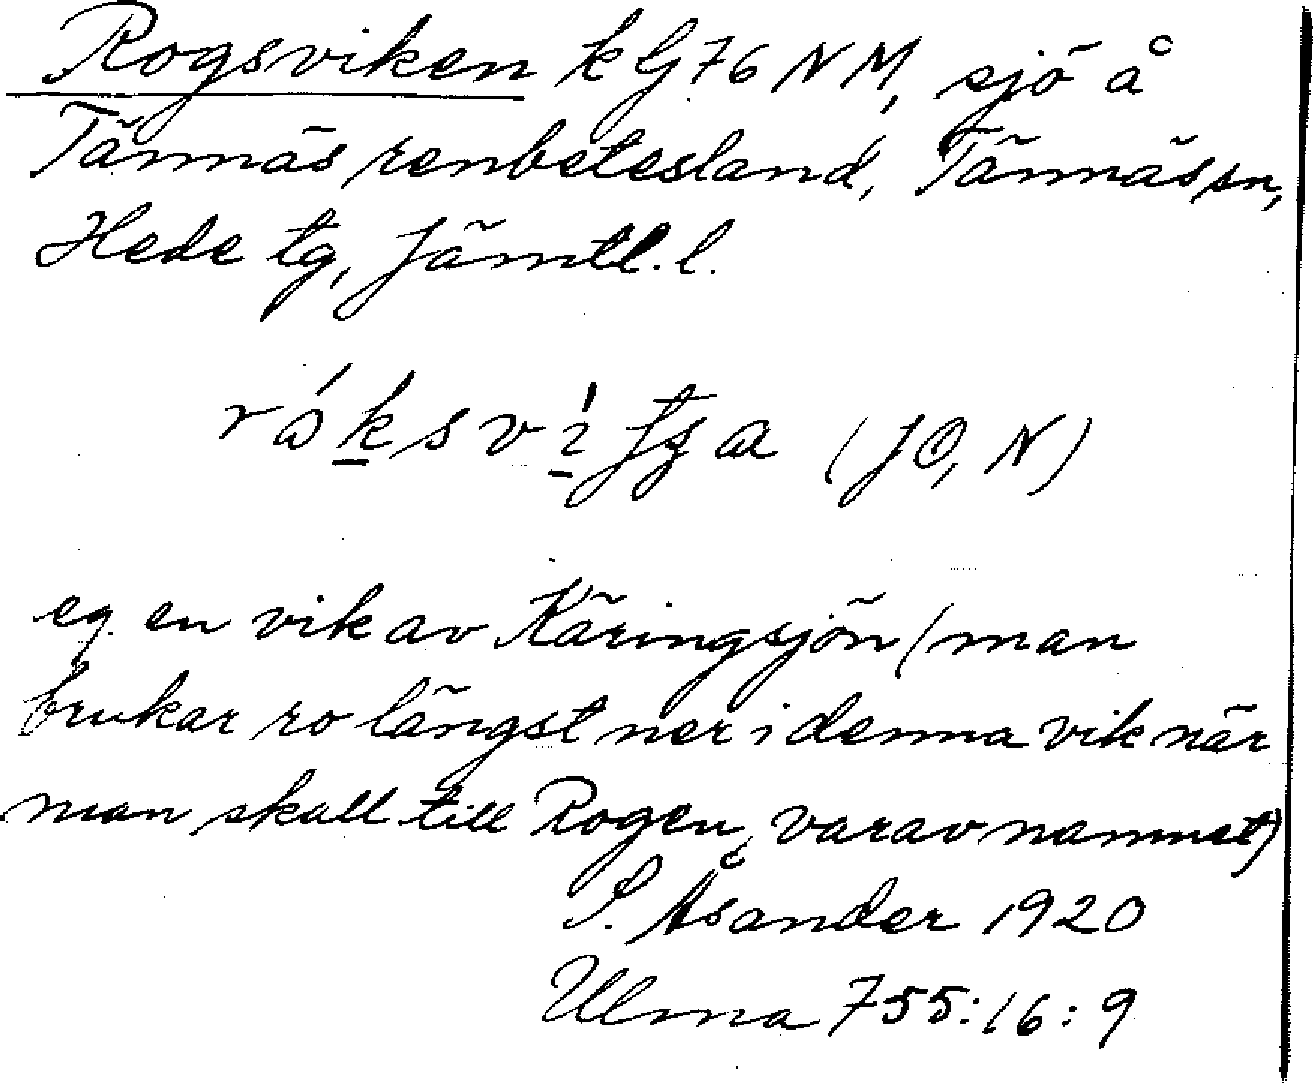 Rogsviken k G 76 NM, sjö å
Tännäs renbetesland, Tännäs sn,
Hede tg, Jämtl. l.
(JO, N)
eg. en vik av Käringsjön (man
brukar ro längst ner i denna vik när
man skall till Rogen, varav namnet)
P. Åsander 1920
Ulma 755:16:9